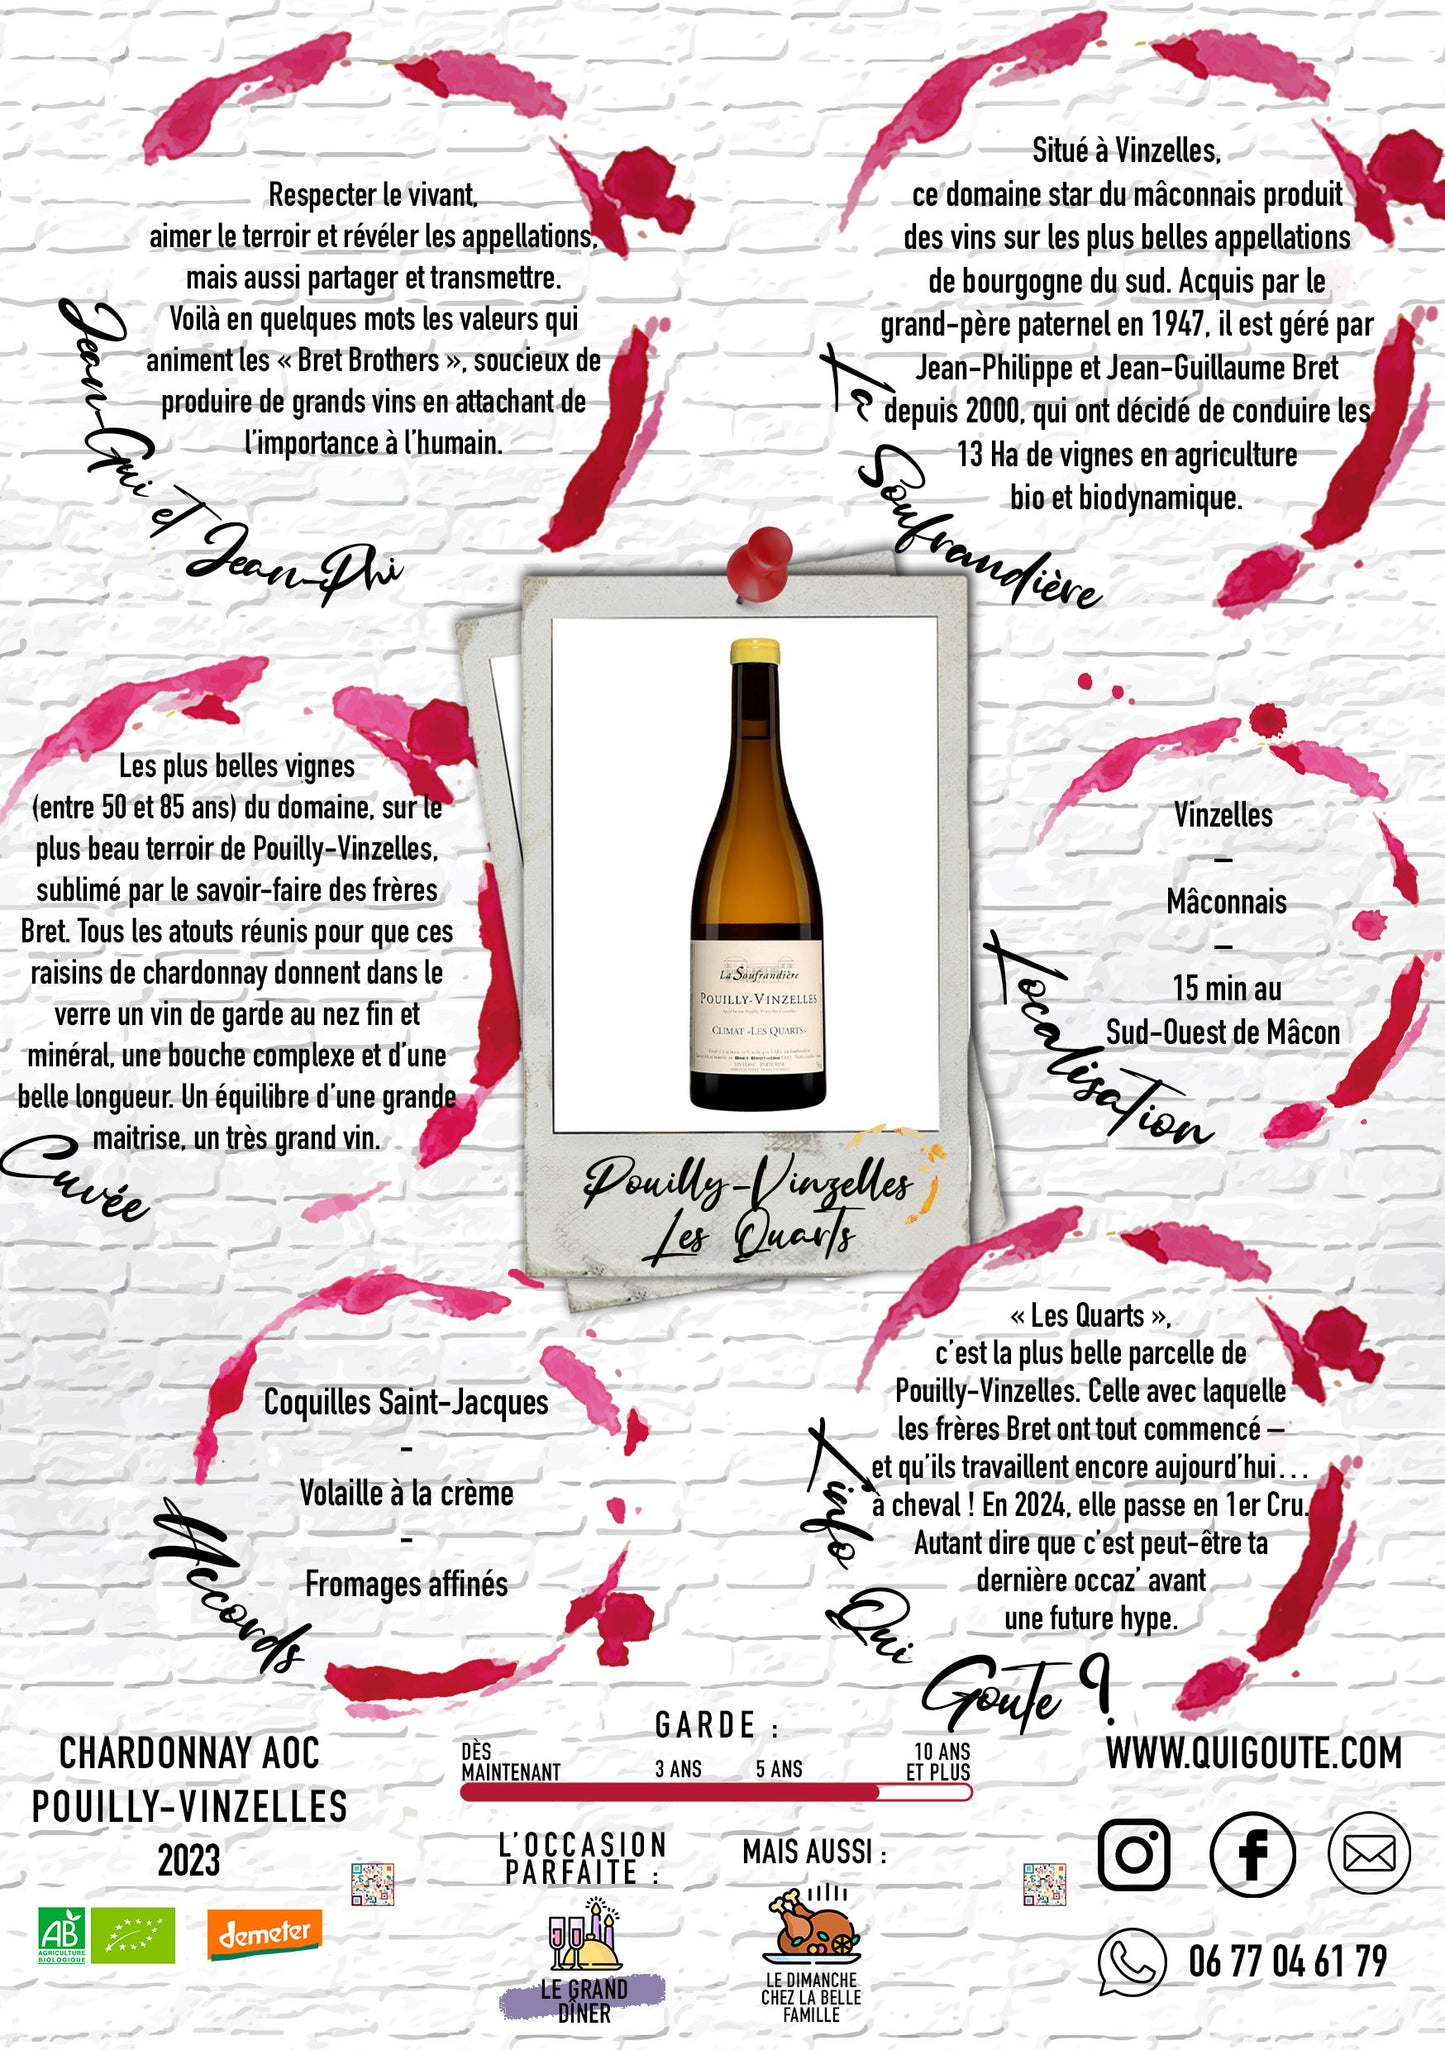 Respecter le vivant,
aimer le terroir et révéler les appellations,
mais aussi partager et transmettre.
Voilà en quelques mots les valeurs qui
animent les « Bret Brothers », soucieux de
produire de grands vins en attachant de
l'importance à l'humain.
Jean-Gui et Jean-Phi
Situé à Vinzelles,
ce domaine star du mâconnais produit
des vins sur les plus belles appellations
de bourgogne du sud. Acquis par le
grand-père paternel en 1947, il est géré par
Jean-Philippe et Jean-Guillaume Bret
depuis 2000, qui ont décidé de conduire les
13 Ha de vignes en agriculture
bio et biodynamique.
La Soufrandière
Les plus belles vignes
(entre 50 et 85 ans) du domaine, sur le
plus beau terroir de Pouilly-Vinzelles,
sublimé par le savoir-faire des frères
Bret. Tous les atouts réunis pour que ces
raisins de chardonnay donnent dans le
verre un vin de garde au nez fin et
minéral, une bouche complexe et d'une
belle longueur. Un équilibre d'une grande
maitrise, un très grand vin.
Cuvée
La Soufrandière
POUILLY-VINZELLES
CLIMAT «LES QUARTS»
BRET BROTHERS
Pouilly-Vinzelles
Les Quarts
Vinzelles
–
Mâconnais
–
15 min au
Sud-Ouest de Mâcon
Localisation
Coquilles Saint-Jacques
-
Volaille à la crème
-
Fromages affinés
Accords
« Les Quarts »,
c'est la plus belle parcelle de
Pouilly-Vinzelles. Celle avec laquelle
les frères Bret ont tout commencé –
et qu'ils travaillent encore aujourd'hui...
à cheval ! En 2024, elle passe en 1er Cru.
Autant dire que c'est peut-être ta
dernière occaz' avant
une future hype.
L'info Qui
Goute ?
CHARDONNAY AOC
POUILLY-VINZELLES
2023
AB
AGRICULTURE
BIOLOGIQUE
demeter
GARDE :
DÈS
MAINTENANT
3 ANS
5 ANS
10 ANS
ET PLUS
L'OCCASION
PARFAITE :
LE GRAND
DÎNER
MAIS AUSSI :
LE DIMANCHE
CHEZ LA BELLE
FAMILLE
WWW.QUIGOUTE.COM
06 77 04 61 79